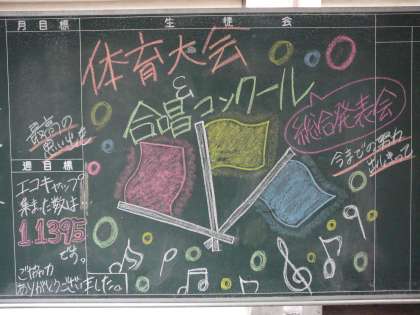 月目標
生徒会
体育大会
&
合唱コンクール
総合発表会
最高の
思い出を
今までの努力
出しきって
週目標
エコキャップ
集まった数は…
11395
です。
ご協力
ありがとうございました。